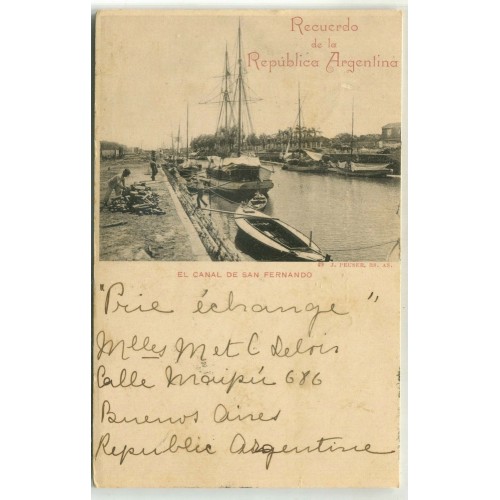 Recuerdo
de la
República Argentina
EL CANAL DE SAN FERNANDO
J. PEUSER, BS. AS.
"Prie échange"
Mlles M et C Delois
Calle Maipú 686
Buenos Aires
Republic Argentine